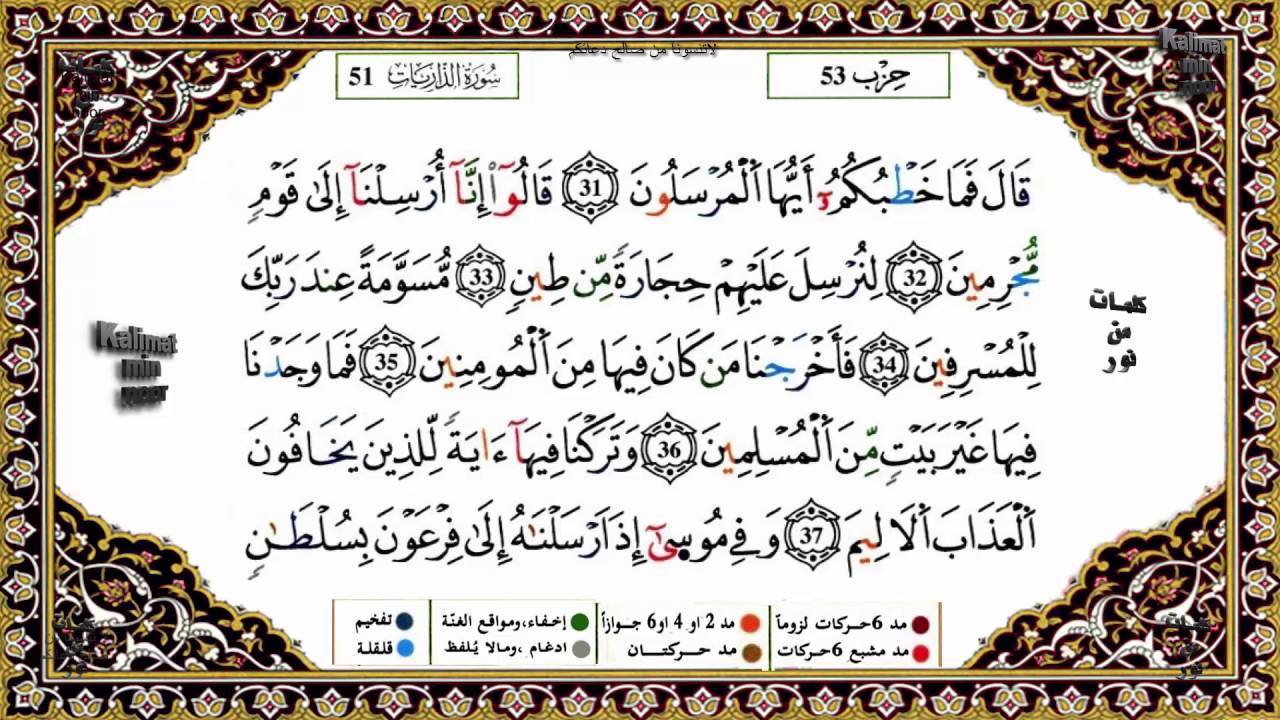 لاتنسونا من صالح دعائكم
حِزْب 53
سُورَةُ الذَّارِيَات 51
قَالَ فَمَا خَطْبُكُمُۥٓ أَيُّهَا اَ۬لْمُرْسَلُونَ 31 قَالُوٓاْ إِنَّآ أُرْسِلْنَآ إِلَىٰ قَوْمٖ
مُّجْرِمِينَ 32 لِنُرْسِلَ عَلَيْهِمْ حِجَارَةٗ مِّن طِينٖ 33 مُّسَوَّمَةً عِندَ رَبِّكَ
لِلْمُسْرِفِينَ 34 فَأَخْرَجْنَا مَن كَانَ فِيهَا مِنَ اَ۬لْمُومِنِينَ 35 فَمَا وَجَدْنَا
فِيهَا غَيْرَ بَيْتٖ مِّنَ اَ۬لْمُسْلِمِينَ 36 وَتَرَكْنَا فِيهَآ ءَايَةٗ لِّلذِينَ يَخَافُونَ
اَ۬لْعَذَابَ اَ۬لَالِيمَ 37 وَفِے مُوسَىٰٓ إِذَ اَرْسَلْنَٰهُ إِلَىٰ فِرْعَوْنَ بِسُلْطَٰنٖ
كلمات
من
نور
Kalimat
min
noor
Kalimat
min
noor
مد 6 حركات لزوماً
مد 2 او 4 او 6 جوازاً
إخفاء، ومواقع الغنّة
تفخيم
مد مشبع 6 حركات
مد حركتان
ادغام، ومالا يُلفظ
قلقلة